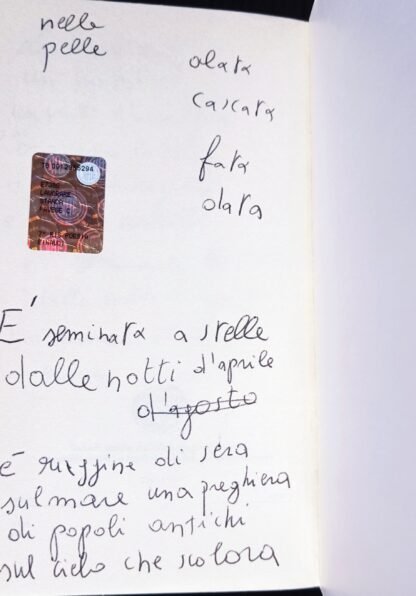 nelle
pelle
alata
cascata
fata
alata
LAVORARE
STANCA
PAVESE C
EINAUDI
E' seminata a stelle
dalle notti d'aprile
d'agosto
è ruggine di sera
sul mare una preghiera
di popoli antichi
sul cielo che scolora